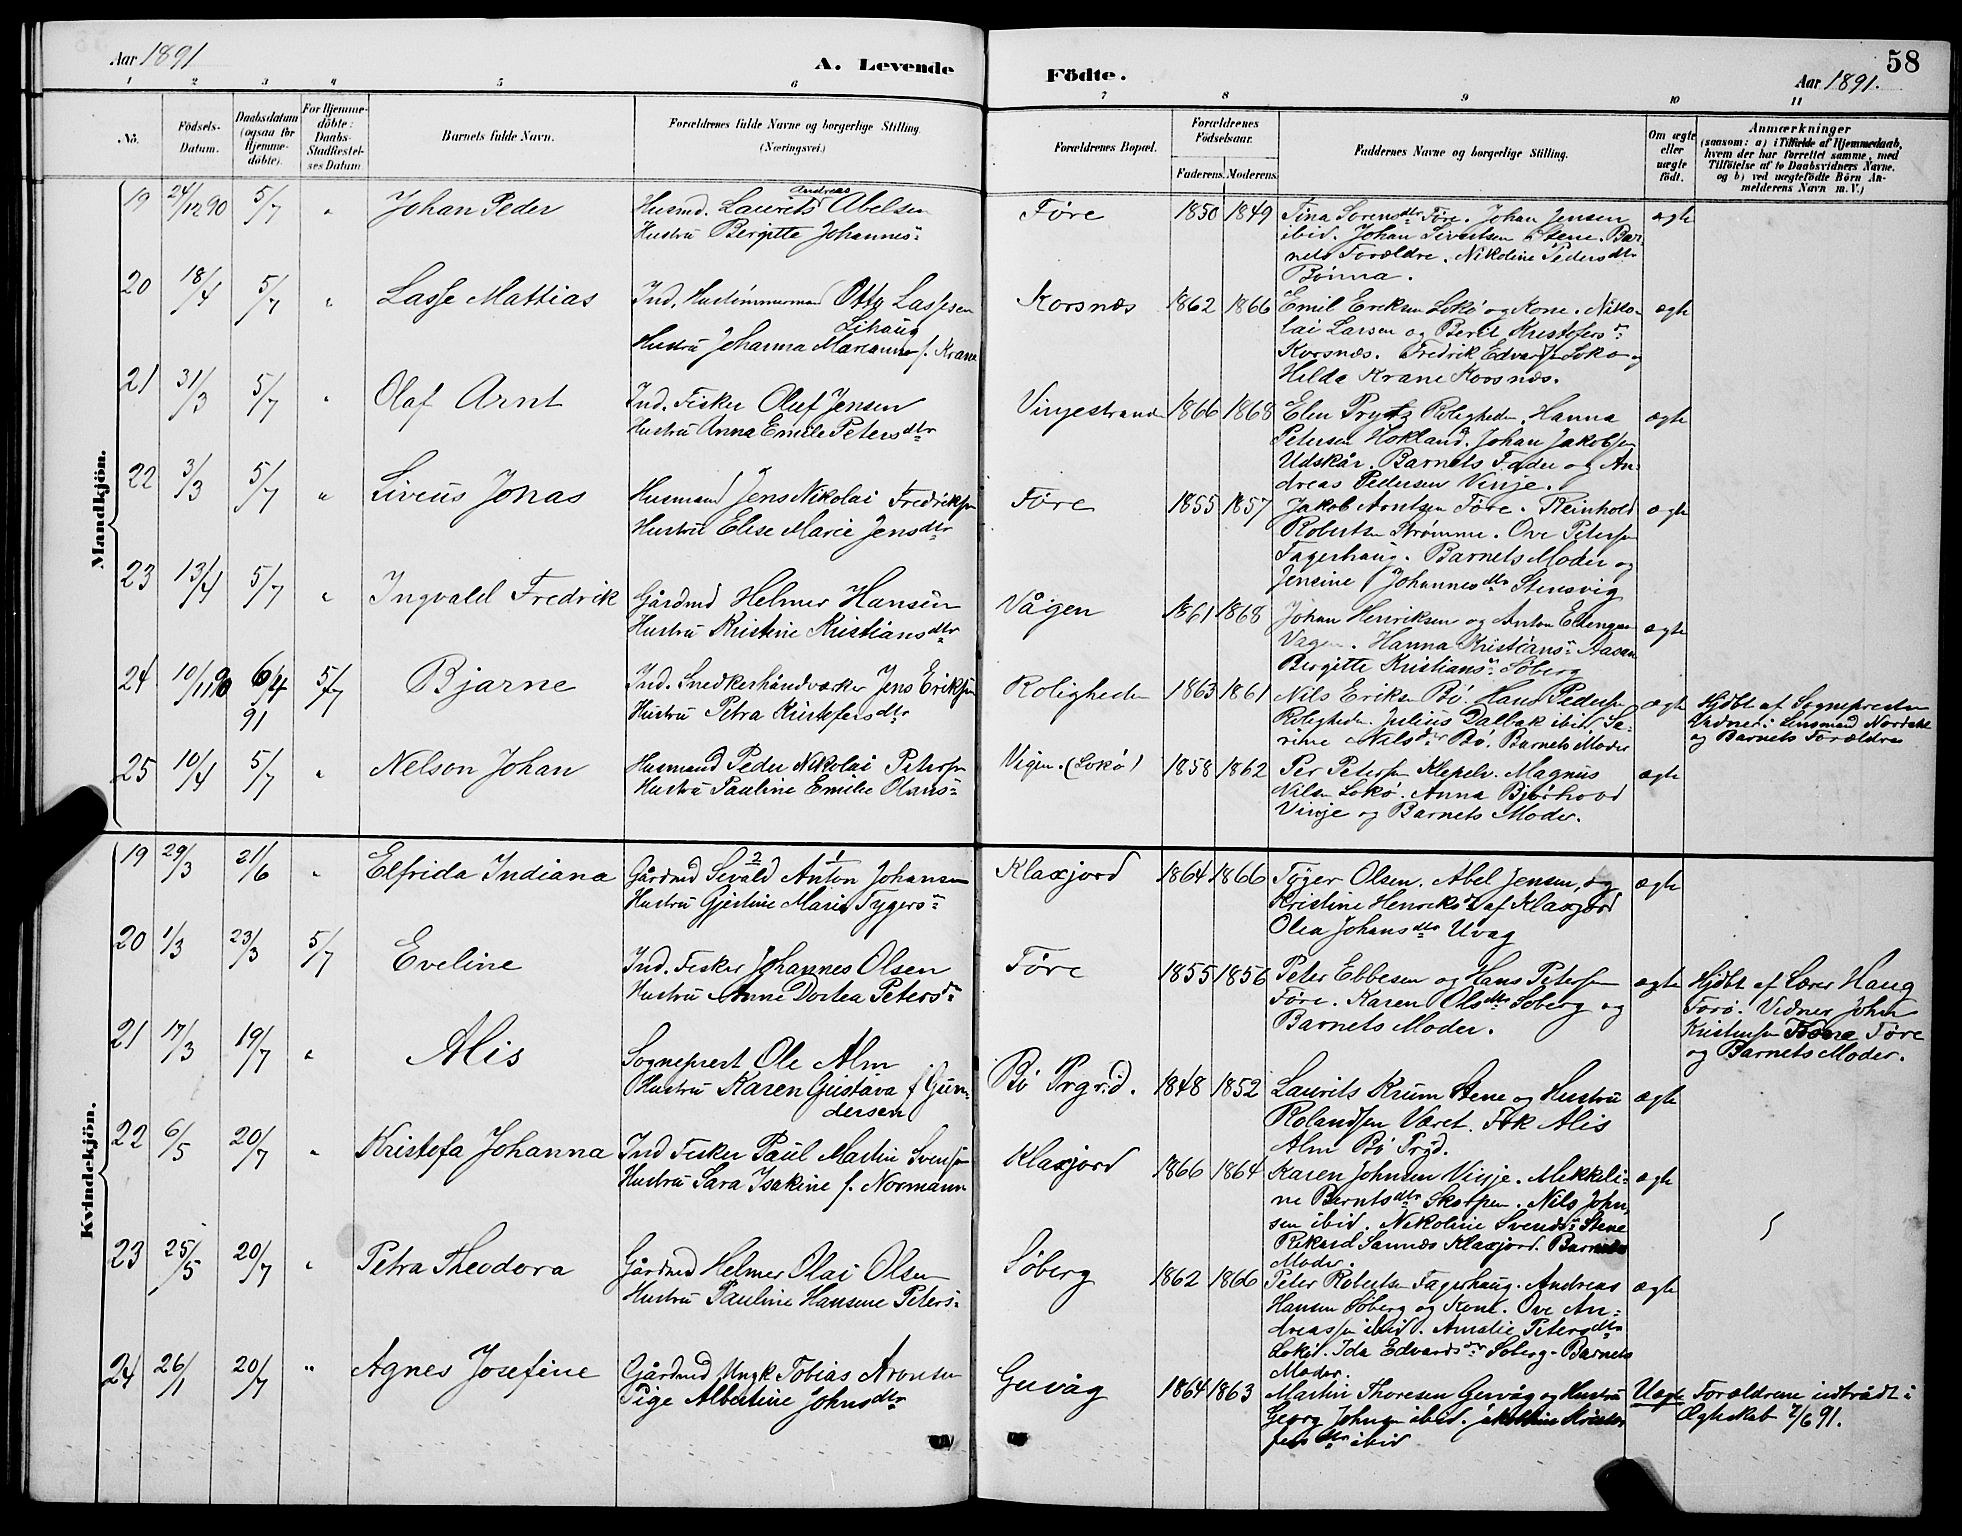 Aar 1891
A. Levende Födte.
Aar 1891.
58
1 2 3 4 5 6 7 8 9 10 11
No.
Födsels-Datum.
Daabsdatum (ogsaa for Hjemme-døbte).
For Hjemme-døbte: Daabs-Stadfæstelses Datum.
Barnets fulde Navn.
Forældrenes fulde Navne og borgerlige Stilling. (Næringsvei.)
Forældrenes Bopæl.
Forældrenes Födselsaar.
Faderens. Moderens.
Faddernes Navne og borgerlige Stilling.
Om ægte eller uægte født.
Anmærkninger
(saasom: a) i Tilfælde af Hjemmedaab, hvem der har forrettet samme, med Tilføielse af to Daabsvidners Navne. og b) ved uægtefødte Börn Anmelderens Navn m. V.)
Mandkjön.
19 24/12 90 5/7 " Johan Peder
Husmd. Laurits Andreas Abelsen
Hustru Bergitte Johannes-
Føre 1850 1849
Tina Sorensdtr Føre. Johan Jensen
ibid. Johan Sivertsen Stene. Bar-
nets Forældre. Nikoline Pedersdtr
Bønna.
ægte
20 18/4 5/7 " Lasse Mattias
Ind. Hustømmermand Otty Lassesen
Lihaug
Hustru Johanna Marianna f. Krane
Korsnæs 1862 1866
Emil Eriksen Lokø og Kone. Niko-
lai Larsen og Berit Kristofers-
Korsnæs. Fredrik Edvardsen Lokø og
Hilda Krane Korsnæs.
ægte
21 31/3 5/7 " Olaf Arnt
Ind. Fisker Oluf Jensen
Hustru Anna Emilie Petersdtr
Vinjestrand 1866 1868
Elen Prytz Roligheden. Hanna
Petersen Hokland. Johan Jakobsen
Udskår. Barnets Fader og An-
dreas Pedersen Vinje.
ægte
22 3/3 5/7 " Liveus Jonas
Husmand Jens Nikolai Fredriksen
Hustru Elise Marie Jensdtr
Føre 1855 1857
Jakob Arntsen Føre. Reinhold
Robertsen Strømme. Ove Petersen
Fagerhaug. Barnets Moder og
Jensine Johannesdtr Stensvig
ægte
23 13/4 5/7 " Ingvald Fredrik
Gårdmd Helmer Hansen
Hustru Kristine Kristiansdtr
Vågen 1861 1868
Johan Henriksen og Anton
Vågen. Hanna Kristians-
Bergitte Kristians- Søberg
ægte
24 10/11 90 6/4 91 5/7 Bjarne
Ind. Snedkerhåndværker Jens Eriksen
Hustru Petra Kristofersdtr
Roligheden 1863 1861
Nils Eriksen Bø. Hans Pedersen
Roligheden. Julius Dalbak ibid. Sa-
rine Nilsdtr Bø. Barnets Moder
ægte
Hjdbt af Sognepresten
Vidner: Lensmand Nordahl
og Barnets Forældre
25 10/4 5/7 " Nelson Johan
Husmand Peder Nikolai Petersen
Hustru Pauline Emilie Olaus-
Vigen. (Lokø) 1858 1862
Per Petersen Klepelv. Magnus
Nilsen Lokø. Anna Bjørhovd
Vinje og Barnets Moder.
ægte
Kvindekjön.
19 29/3 21/6 " Elfrida Indiana
Gårdmd Sivald 2 Anton 1 Johansen
Hustru Gjertine Marie Tygers-
Klaxjord 1864 1866
Tyger Olsen. Abel Jensen, og
Kristine Henriksdtr af Klaxjord
Olea Johansdtr Uvåg
ægte
20 1/3 23/3 5/7 Eveline
Ind. Fisker Johannes Olsen
Hustru Anne Dortea Petersdtr
Føre 1855 1856
Peter Ebbesen og Hans Petersen
Føre. Karen Olsdtr Søberg og
Barnets Moder.
ægte
Hjdbt af Lærer Haug
Føre. Vidner John
Kristensen Føre
og Barnets Moder.
21 17/3 19/7 " Alis
Sogneprest Ole Alm
Hustru Karen Gustava f Gun-
dersen
Bø Prgrd. 1848 1852
Laurits Krum Stene og Hustru
Rolandsen Været. Frk Alis
Alm Bø Prgd.
ægte
22 6/5 20/7 " Kristofa Johanna
Ind Fisker Paul Martin Svensen
Hustru Sara Isakine f. Normann
Klaxjord 1866 1864
Karen Johnsen Vinje. Mekkeli-
ne Berntsdtr Skorpen. Nils John-
sen ibid. Nikoline Svends- Stene
Rikard Sannæs Klaxjord. Barnets
Moder.
ægte
23 25/5 20/7 " Petra Theodora
Gårdmd Helmer Olai Olsen
Hustru Pauline Hansine Peters-
Søberg 1862 1866
Peter Robertsen Fagerhaug. Andreas
Hansen Søberg og Kone. Ove An-
dreassen ibid. Amalie Petersdtr
Lokø. Ida Edvardsdtr Søberg. Barnets
Moder.
ægte
24 26/1 20/7 " Agnes Josefine
Gårdmd Ungk Tobias Aronsen
Pige Albertine Johnsdtr
Guvåg 1864 1863
Martin Thoresen Guvåg og Hustru
Georg Johnsen ibid. Jakobine Kristof-
fersdtr ibid
Uægte
Forældrene indtrådt i
Ægteskab 7/6 91.